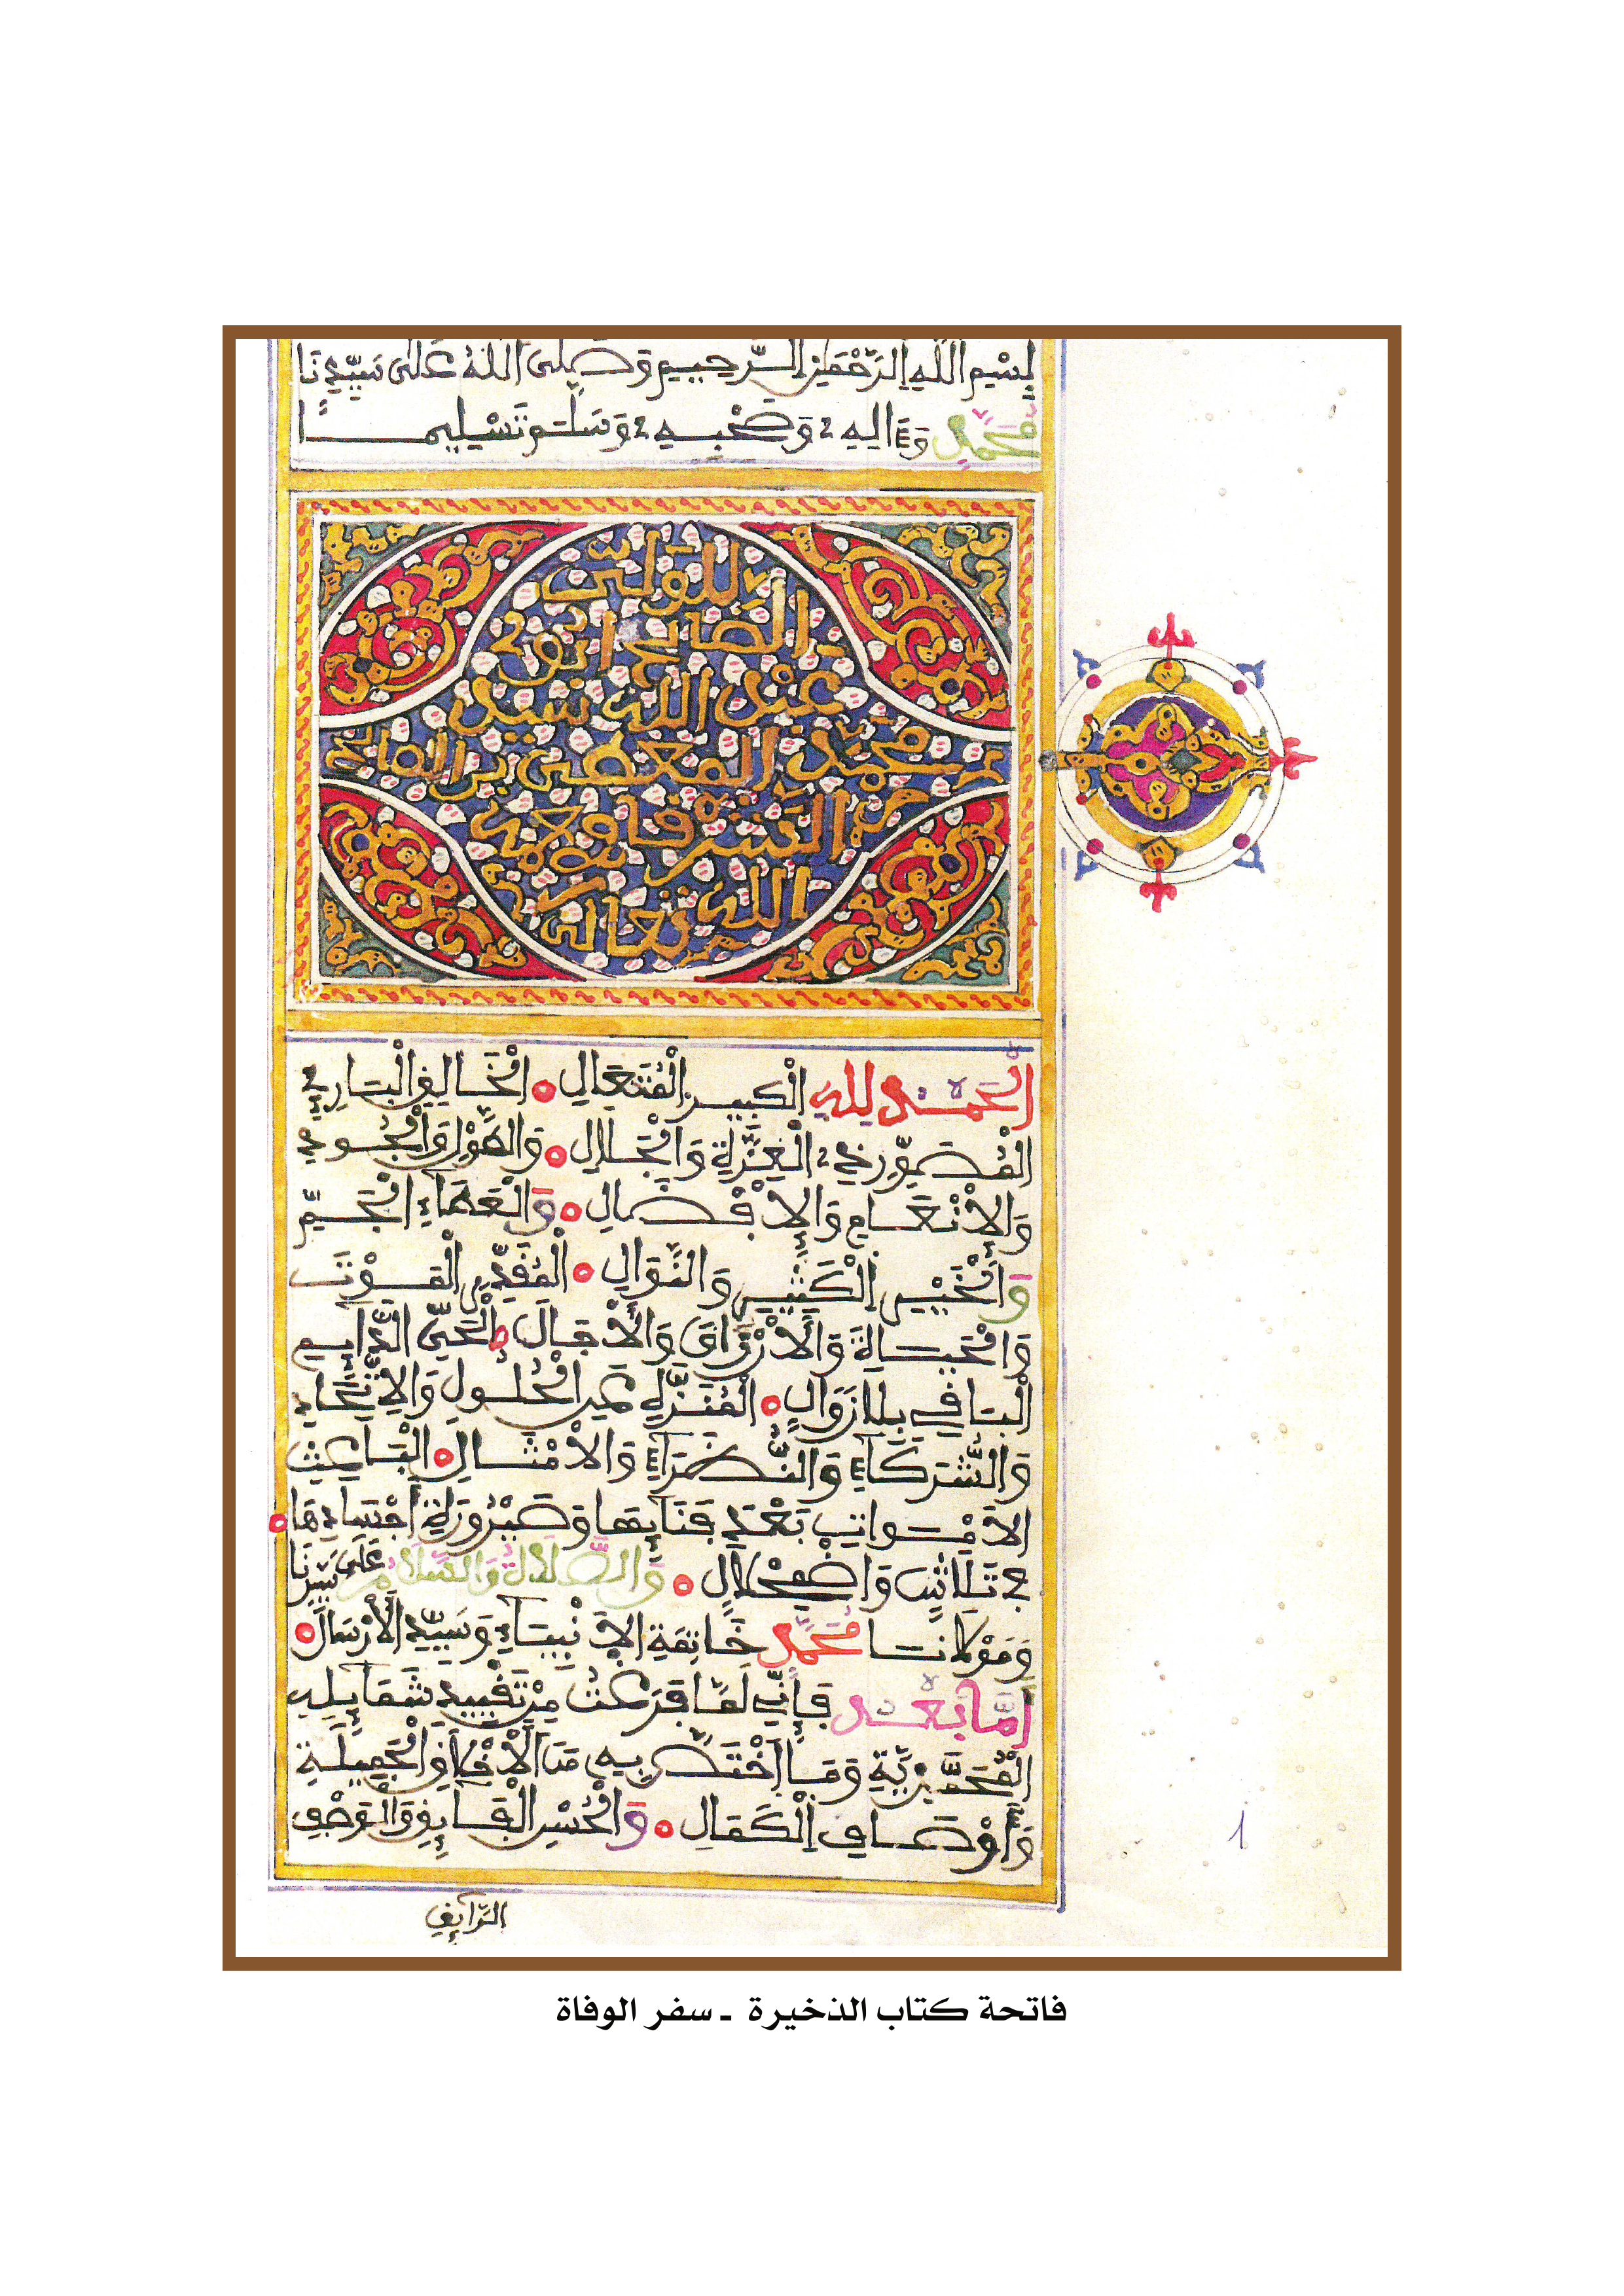 بِسْمِ اللَّهِ الرَّحْمَٰنِ الرَّحِيمِ وَصَلَّى اللَّهُ عَلَى سَيِّدِنَا
مُحَمَّدٍ وَءَالِهِ وَصَحْبِهِ وَسَلَّمَ تَسْلِيمًا
الصالح ابو
عبد الله سيدي
محمد المعطى بن الصالح
الشرقاوي رحمه
الله تعالى
الْحَمْدُ لِلَّهِ الْكَبِيرِ الْمُتَعَالِ الْخَالِقِ الْبَارِئِ
الْمُصَوِّرِ ذِي الْعِزَّةِ وَالْجَلَالِ وَالطَّوْلِ وَالْجُودِ
وَالْإِنْعَامِ وَالْإِفْضَالِ وَالْعَطَاءِ الْجَمِّ
وَالْخَيْرِ الْكَثِيرِ وَالنَّوَالِ الْمُقَدِّرِ الْمَوْتَ
وَالْحَيَاةَ وَالْأَرْزَاقَ وَالْأَجَالَ الْحَيِّ الدَّايِمِ
الْبَاقِي بِلَا زَوَالٍ الْمُنَزَّهِ عَنِ الْحُلُولِ وَالِاتِّحَادِ
وَالشُّرَكَاءِ وَالنُّظَرَاءِ وَالْأَمْثَالِ الْبَاعِثِ
الْأَمْوَاتِ بَعْدَ فَنَايِهَا وَصَيْرُورَةِ أَجْسَادِهَا
فِي تَلَاشٍ وَاضْمِحْلَالٍ وَالصَّلَاةُ وَالسَّلَامُ عَلَى سَيِّدِنَا
وَمَوْلَانَا مُحَمَّدٍ خَاتِمَةِ الْأَنْبِيَاءِ وَسَيِّدِ الْأَرْسَالِ
أَمَّا بَعْدُ فَإِنِّي لَمَّا فَرَغْتُ مِنْ تَقْيِيدِ شَمَايِلِهِ
الْمُحَمَّدِيَّةِ وَمَا اخْتَصَّ بِهِ مِنَ الْأَخْلَاقِ الْجَمِيلَةِ
وَأَوْصَافِ الْكَمَالِ وَالْحُسْنِ الْفَايِقِ وَالْوَصْفِ
الرَّايِقِ
١
فاتحة كتاب الذخيرة ـ سفر الوفاة